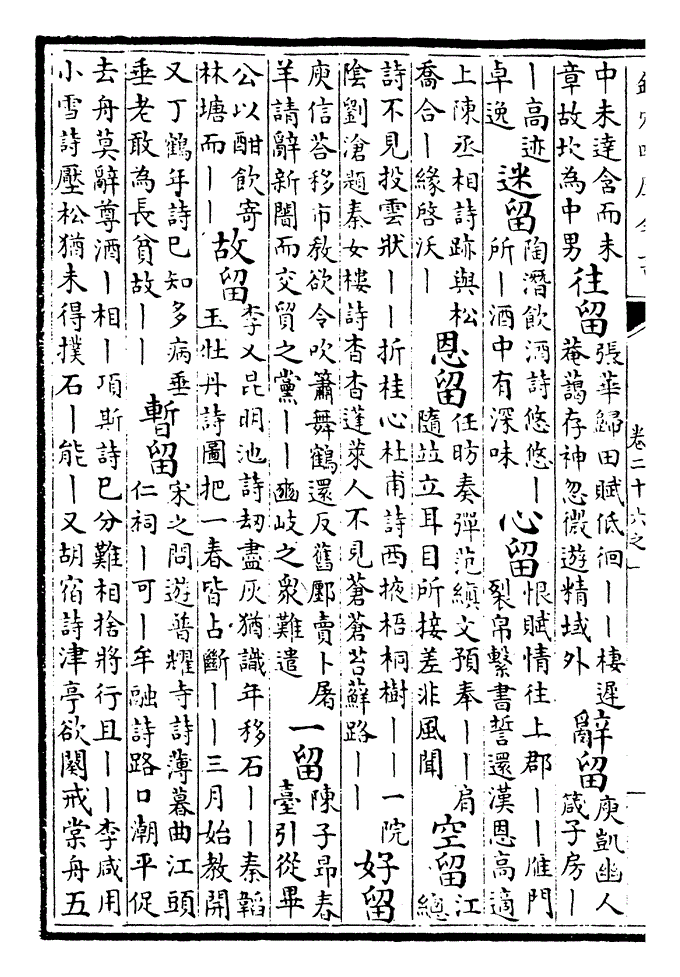 卷二十六之一
中未達含而未
章故坎為中男
往留
張華歸田賦低徊||棲遲
菴藹存神忽微遊精域外
辭留
庾凱幽人
箴子房|
|高迹
卓逸
迷留
陶潛飲酒詩悠悠|
所|酒中有深味
心留
恨賦情往上郡||雁門
裂帛繫書誓還漢恩高適
上陳丞相詩跡與松
喬合|緣啓沃|
恩留
任昉奏彈范縝文預奉||肩
隨竝立耳目所接差非風聞
空留
江
總
詩不見投雲狀||折桂心杜甫詩西掖梧桐樹||一院
陰劉滄題秦女樓詩杳杳蓬萊人不見蒼蒼苔蘚路||
好留
庾信荅移市敎欲令吹簫舞鶴還反舊鄽賣卜屠
羊請辭新闤而交貿之黨||豳岐之衆難遣
一留
陳子昂春
臺引從畢
公以酣飲寄
林塘而||
故留
李乂昆明池詩劫盡灰猶識年移石||秦韜
玉牡丹詩圖把一春皆占斷||三月始教開
又丁鶴年詩已知多病垂
垂老敢為長貧故||
暫留
宋之問遊普耀寺詩薄暮曲江頭
仁祠|可|牟融詩路口潮平促
去舟莫辭尊酒|相|項斯詩已分難相捨將行且||李咸用
小雪詩壓松猶未得撲石|能|又胡宿詩津亭欲闋戒棠舟五